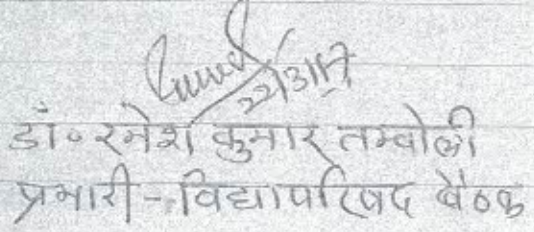 22/3/17
डॉ॰ रमेश कुमार तम्बोली
प्रभारी - विद्यापरिषद बैठक